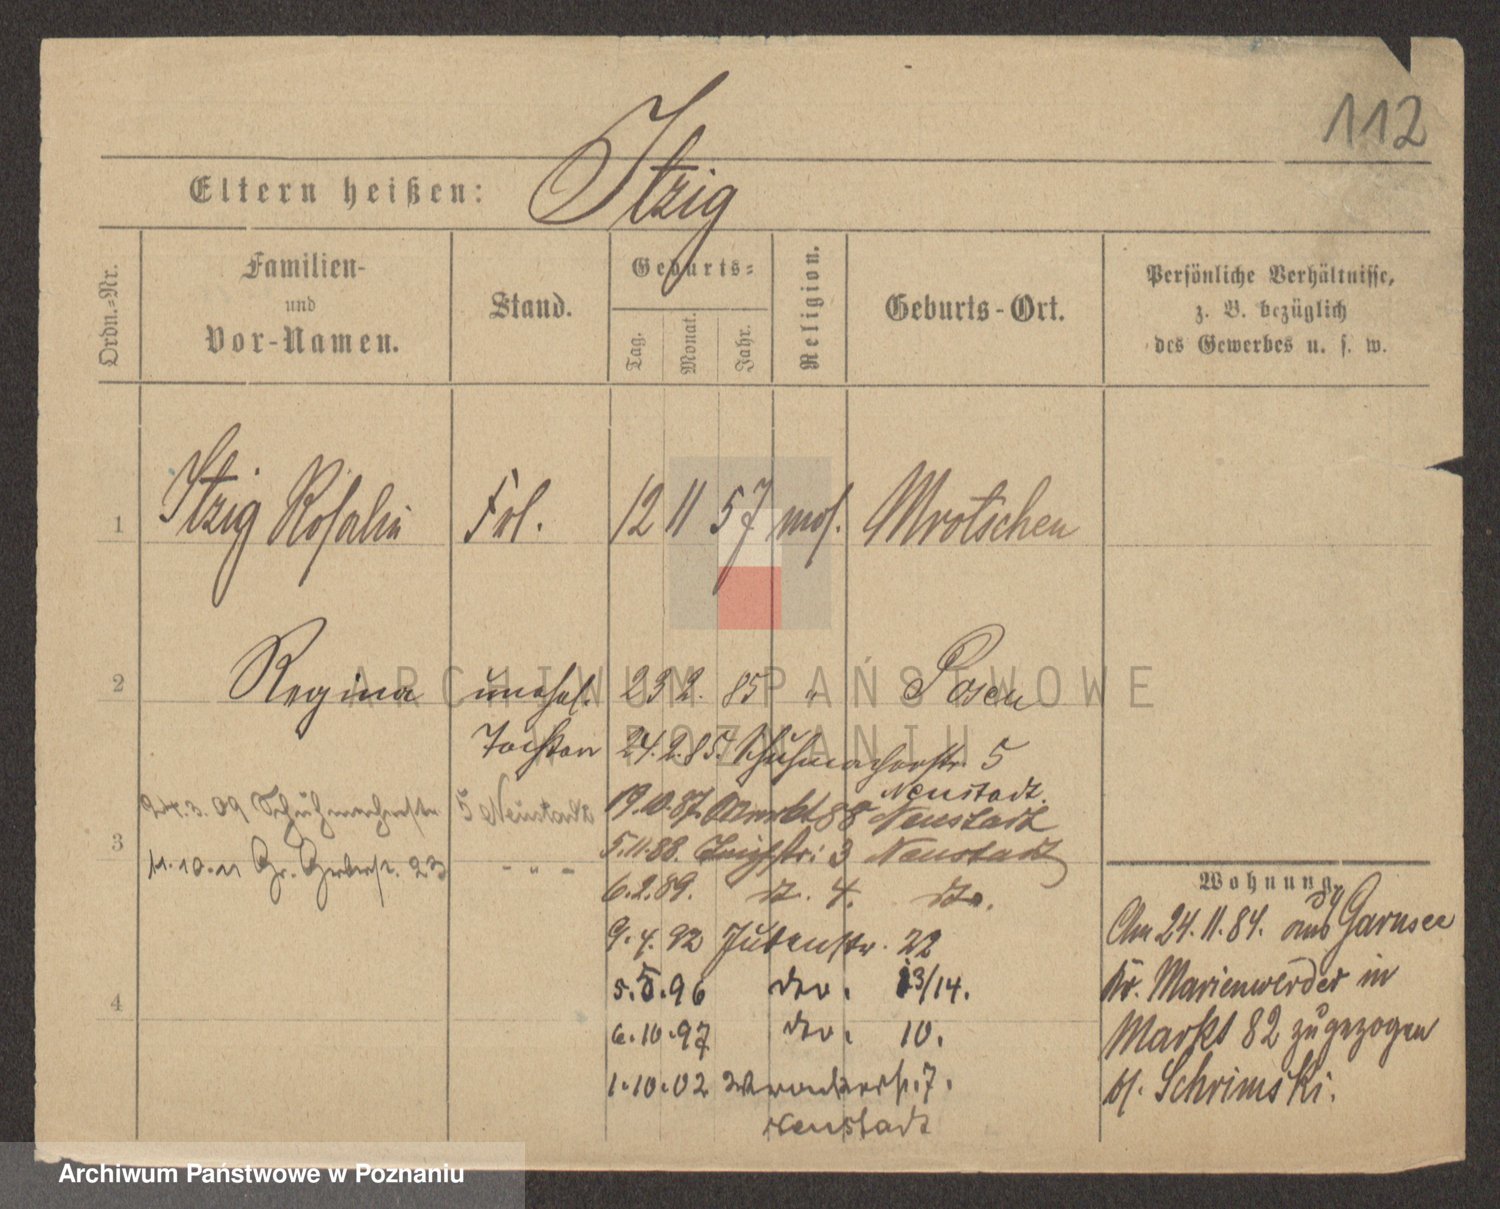 112
Eltern heißen: Itzig
Ordn.-Nr.
Familien-
und
Vor-Namen.
Stand.
Geburts-
Tag.
Monat.
Jahr.
Religion.
Geburts-Ort.
Persönliche Verhältnisse,
z. B. bezüglich
des Gewerbes u. s. w.
1 Itzig Rosalie Frl. 12 11 57 mos. Mrotschen
2 Regina unehel. 23 2. 85 " Posen
Tochter 24.2.85. Schuhmacherstr. 5
Neustadt.
24.3.09 Schuhmacherstr. 5 Neustadt
19.10.87. 88 Neustadt
3
5.11.88. 3 Neustadt
11.10.11 Gr. Gerberst. 23 - " -
6.2.89. do. 4. do.
9.4.92 Judenstr. 22
5.5.96 do. 13/14.
4
6.10.97 do. 10.
1.10.02 Wronkerstr. 7.
Neustadt
Wohnung.
Am 24.11.84. aus Garnsee
Kr. Marienwerder in
Markt 82 zugezogen
b/. Schrimski.
ARCHIWUM PAŃSTWOWE
W POZNANIU
Archiwum Państwowe w Poznaniu